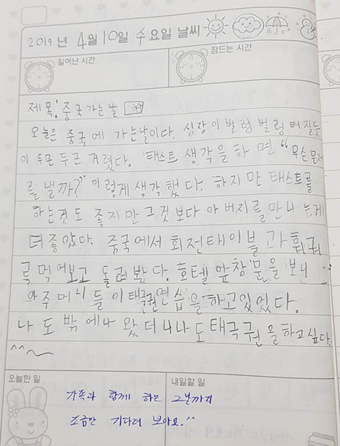 2019 년 4월 10일 수요일 날씨
일어난 시간
잠드는 시간
제목: 중국가는날
오늘은 중국에 가는날이다. 심장이 벌렁벌렁 터질듯
이 두근두근 거렸다. 태스트 생각을 하면 "무슨 문제
를 낼까?" 이렇게 생각했다. 하지만 태스트를
하는것도 좋지만 그것보다 아버지를 만나는게
더 좋았다. 중국에서 회전테이블과 훠궈
를 먹어보고 돌려봤다. 호텔 앞창문을 보니
아주머니들이 태극권연습을 하고있었다.
나도 밖에나 왔더니 나도 태극권을하고싶다.
^^~
오늘한 일
내일할 일
가족과 함께 하는 그날까지
조금만 기다려 보아요.^^